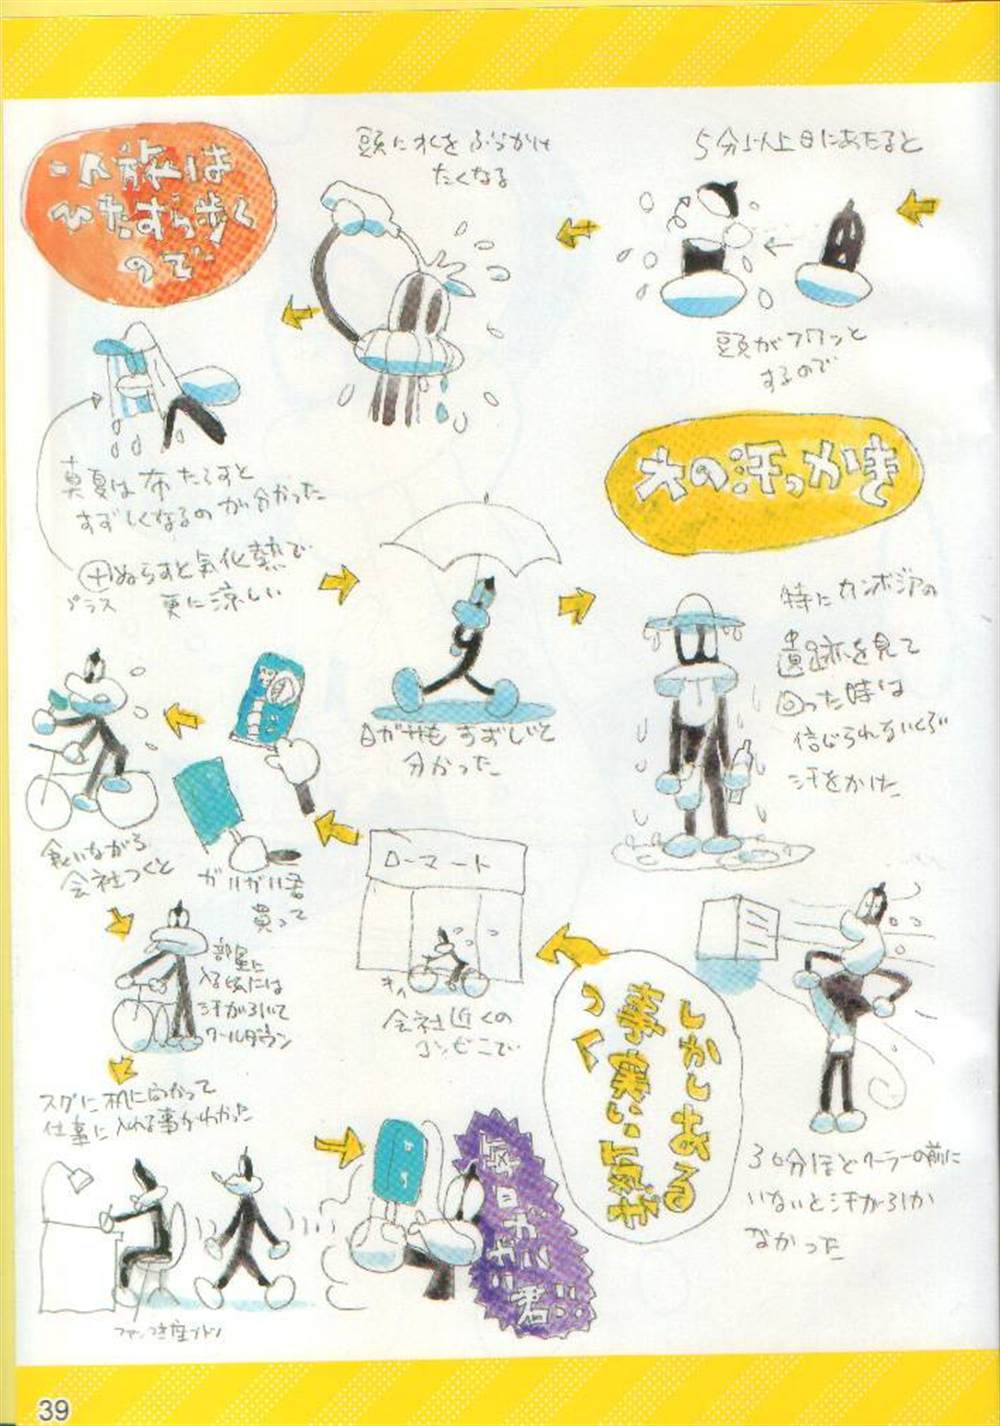 一人旅は
ひたすら歩く
ので
5分以上日にあたると
頭がフワッと
するので
頭に水をぶっかけ
たくなる
真夏は布たらすと
すずしくなるのが分かった
＋ぬらすと気化熱で
プラス
更に涼しい
日ガサもすずしいと
分かった
大の汗っかき
特にカンボジアの
遺跡を見て
回った時は
信じられないくらい
汗をかいた
30分ほどクーラーの前に
いないと汗が引か
なかった
しかしある
事実に気が
つく
ローマート
キィ
会社近くの
コンビニで
ガリガリ君
買って
食いながら
会社つくと
部屋に
入る頃には
汗が引いて
クールダウン
スグに机に向かって
仕事に入れる事がわかった
ファンつき座ブトン
毎日ガリガリ君…
39